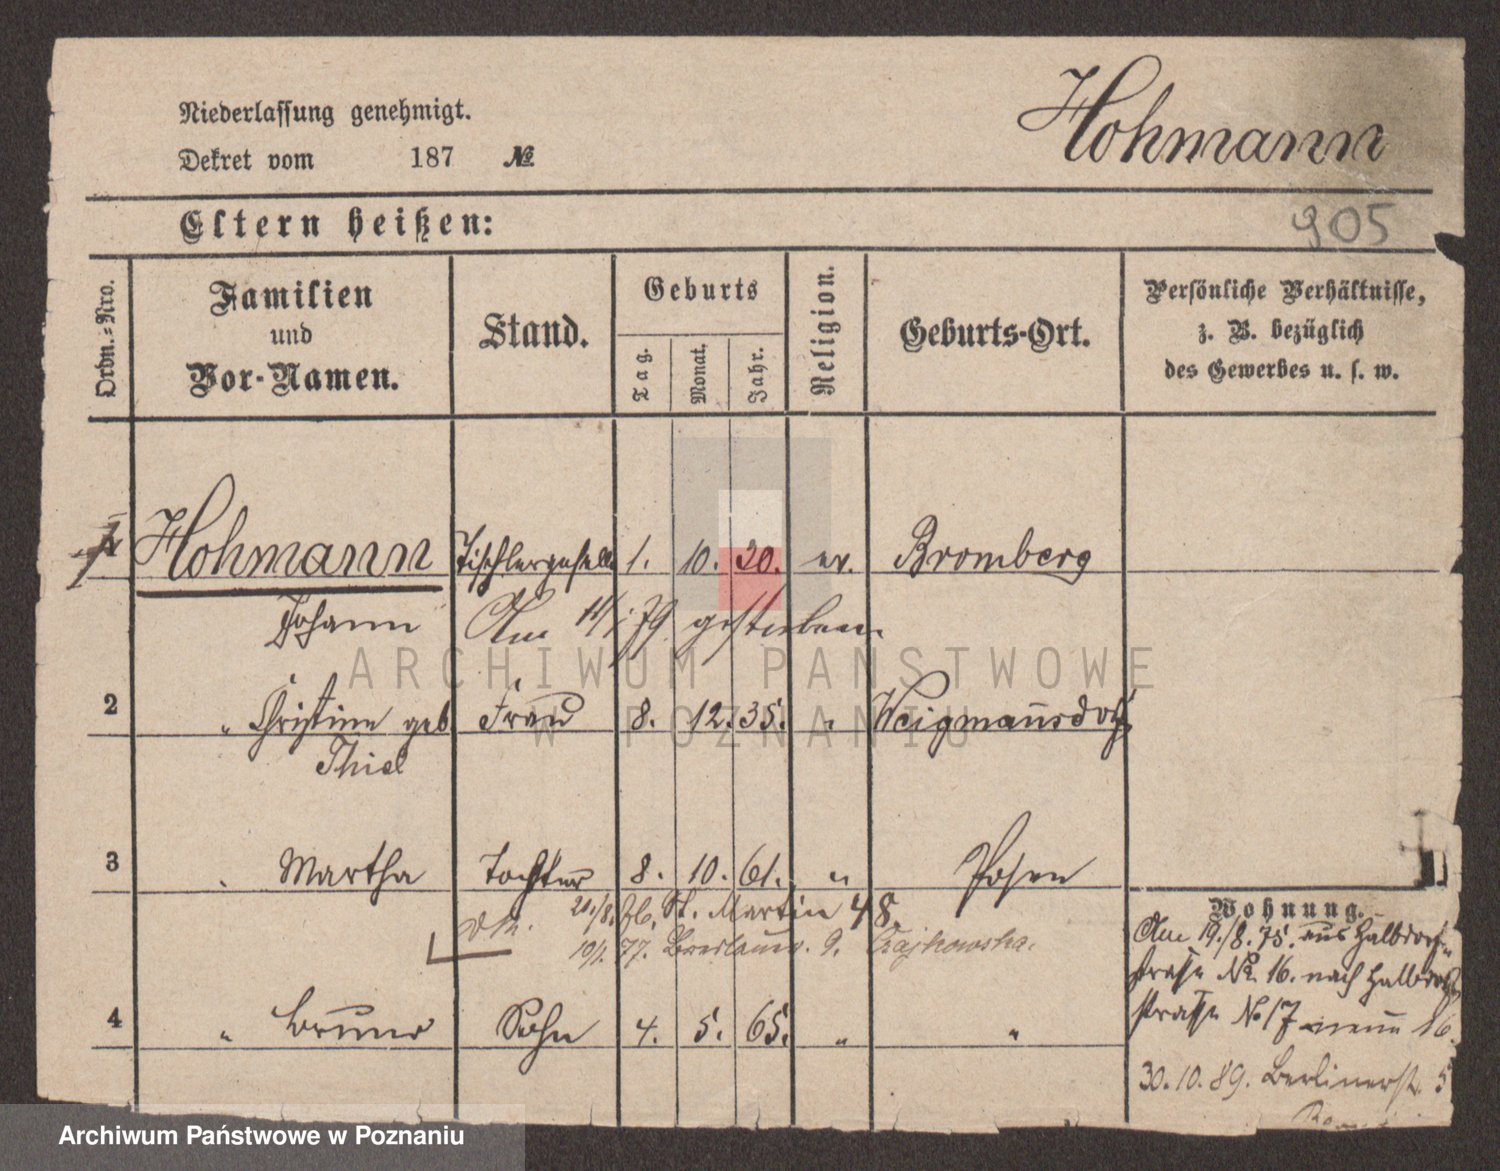 Niederlassung genehmigt.
Dekret vom 187 №
Hohmann
Eltern heißen:
905
Ordn.-Nro.
Familien und Vor-Namen.
Stand.
Geburts
Tag. Monat. Jahr.
Religion.
Geburts-Ort.
Persönliche Verhältnisse,
z. B. bezüglich
des Gewerbes u. s. w.
1 Hohmann Tischlergeselle 1. 10. 30. ev. Bromberg
Johann Am 11/1 79 gestorben
2 " Christine geb Frau 8. 12. 35. " Weigmannsdorf
Thiel
3 " Martha Tochter 8. 10. 61. " Posen
21/8. St. Martin 48.
10/1. 77. Breslauer. 9. Czajkowska.
4 " Bruno Sohn 4. 5. 65. " "
Wohnung.
Am 19./8. 75. aus Halbdorf-
strasse No. 16. nach Halbdorf
strasse No 17 neue 16.
30.10.89. Berlinerst. 5
ARCHIWUM PAŃSTWOWE
W POZNANIU
Archiwum Państwowe w Poznaniu